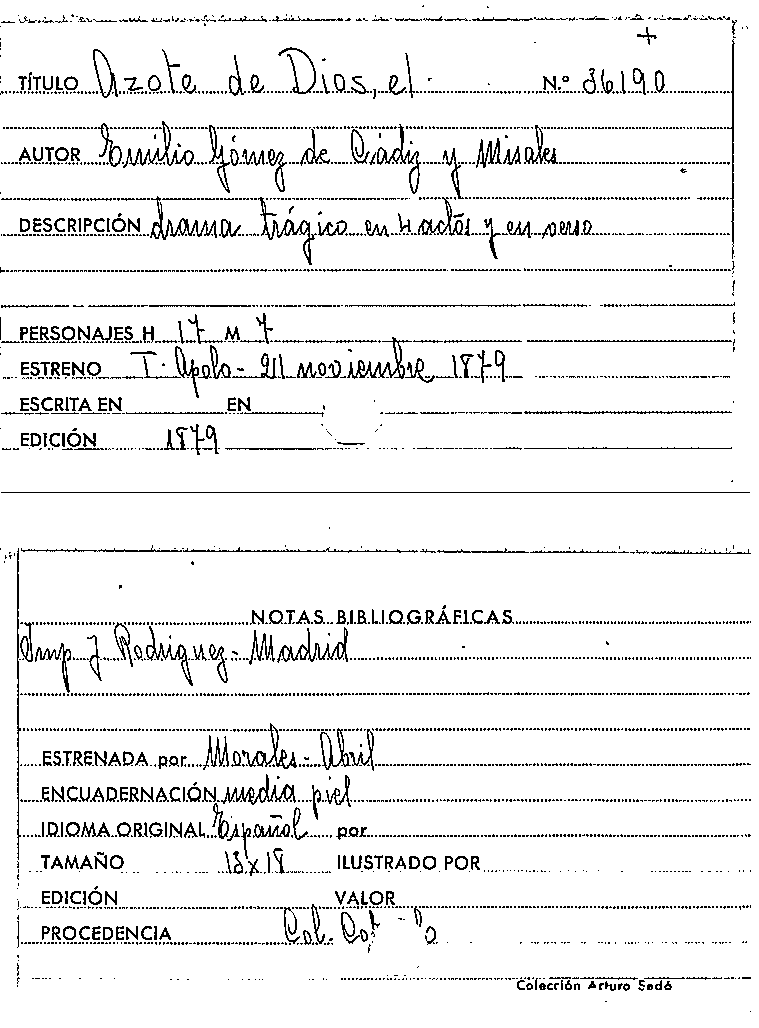 +
TÍTULO Azote de Dios, el. N.º 36190
AUTOR Emilio Gómez de Cádiz y Misales
DESCRIPCIÓN drama trágico en 4 actos y en verso
PERSONAJES H 17 M 7
ESTRENO T. Apolo - 211 noviembre 1879
ESCRITA EN EN
EDICIÓN 1879
NOTAS BIBLIOGRÁFICAS
Imp J Rodriguez - Madrid
ESTRENADA por Morales - Abril
ENCUADERNACIÓN media piel
IDIOMA ORIGINAL Español por
TAMAÑO 13 x 19 ILUSTRADO POR
EDICIÓN VALOR
PROCEDENCIA Col.
Colección Arturo Sedó